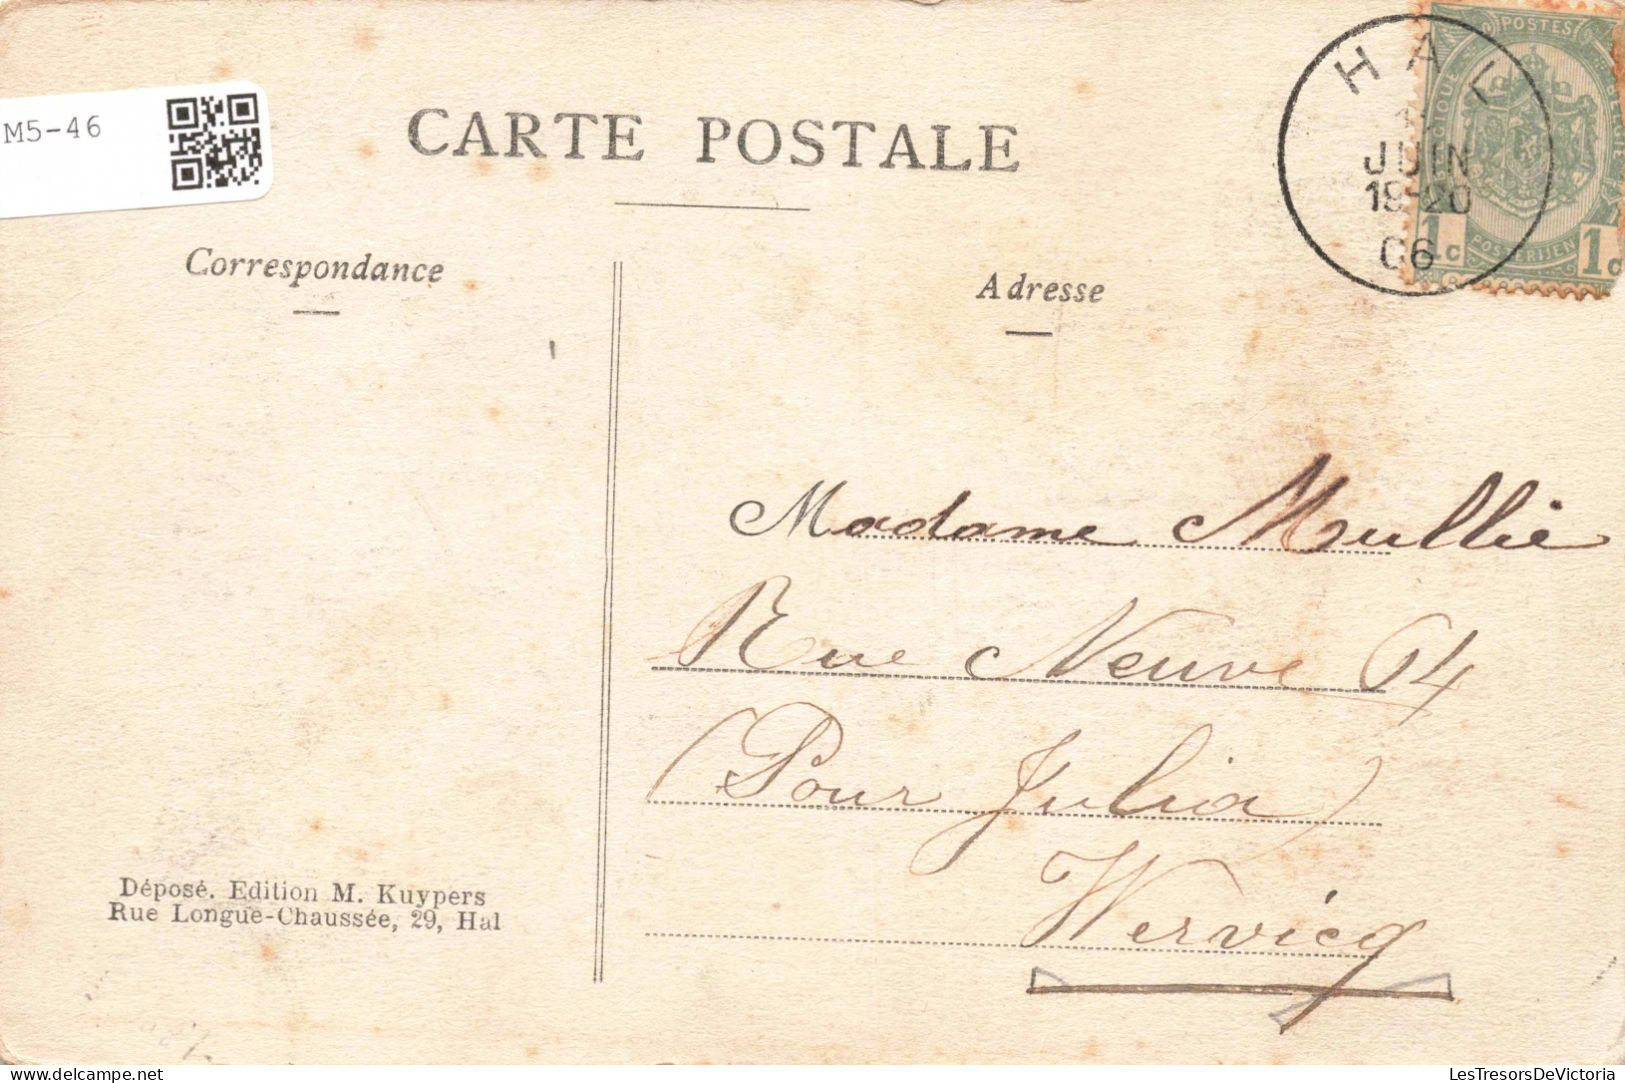 M5-46
CARTE POSTALE
Correspondance
Adresse
HAL
JUIN
19-20
06
POSTES
BELGIQUE
BELGIE
POSTERIJEN
1c 1c
Madame Mullie
Rue Neuve 64
(Pour Julia)
Wervicq
Déposé. Edition M. Kuypers
Rue Longue-Chaussée, 29, Hal
delcampe.net
LesTresorsDeVictoria